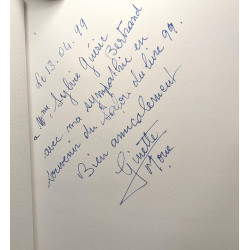 Le 13.04.99
à Mme Sylvie Bertrand
avec ma sympathie en
souvenir du Salon du livre 99.
Bien amicalement
Ginette